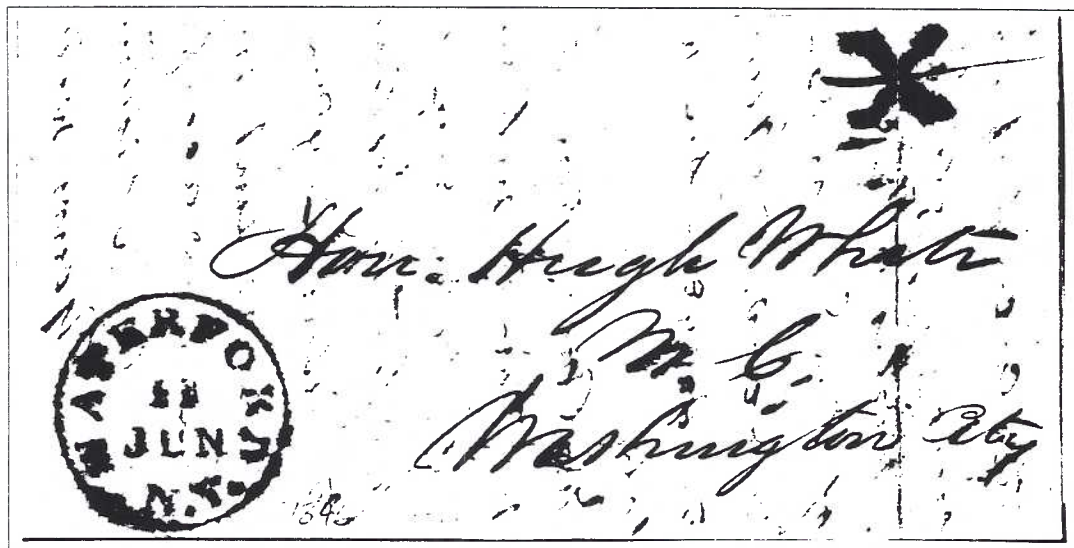 Hon: Hugh White
M. C.
Washington City
WATERFORD
11
JUN
N.Y.
1846